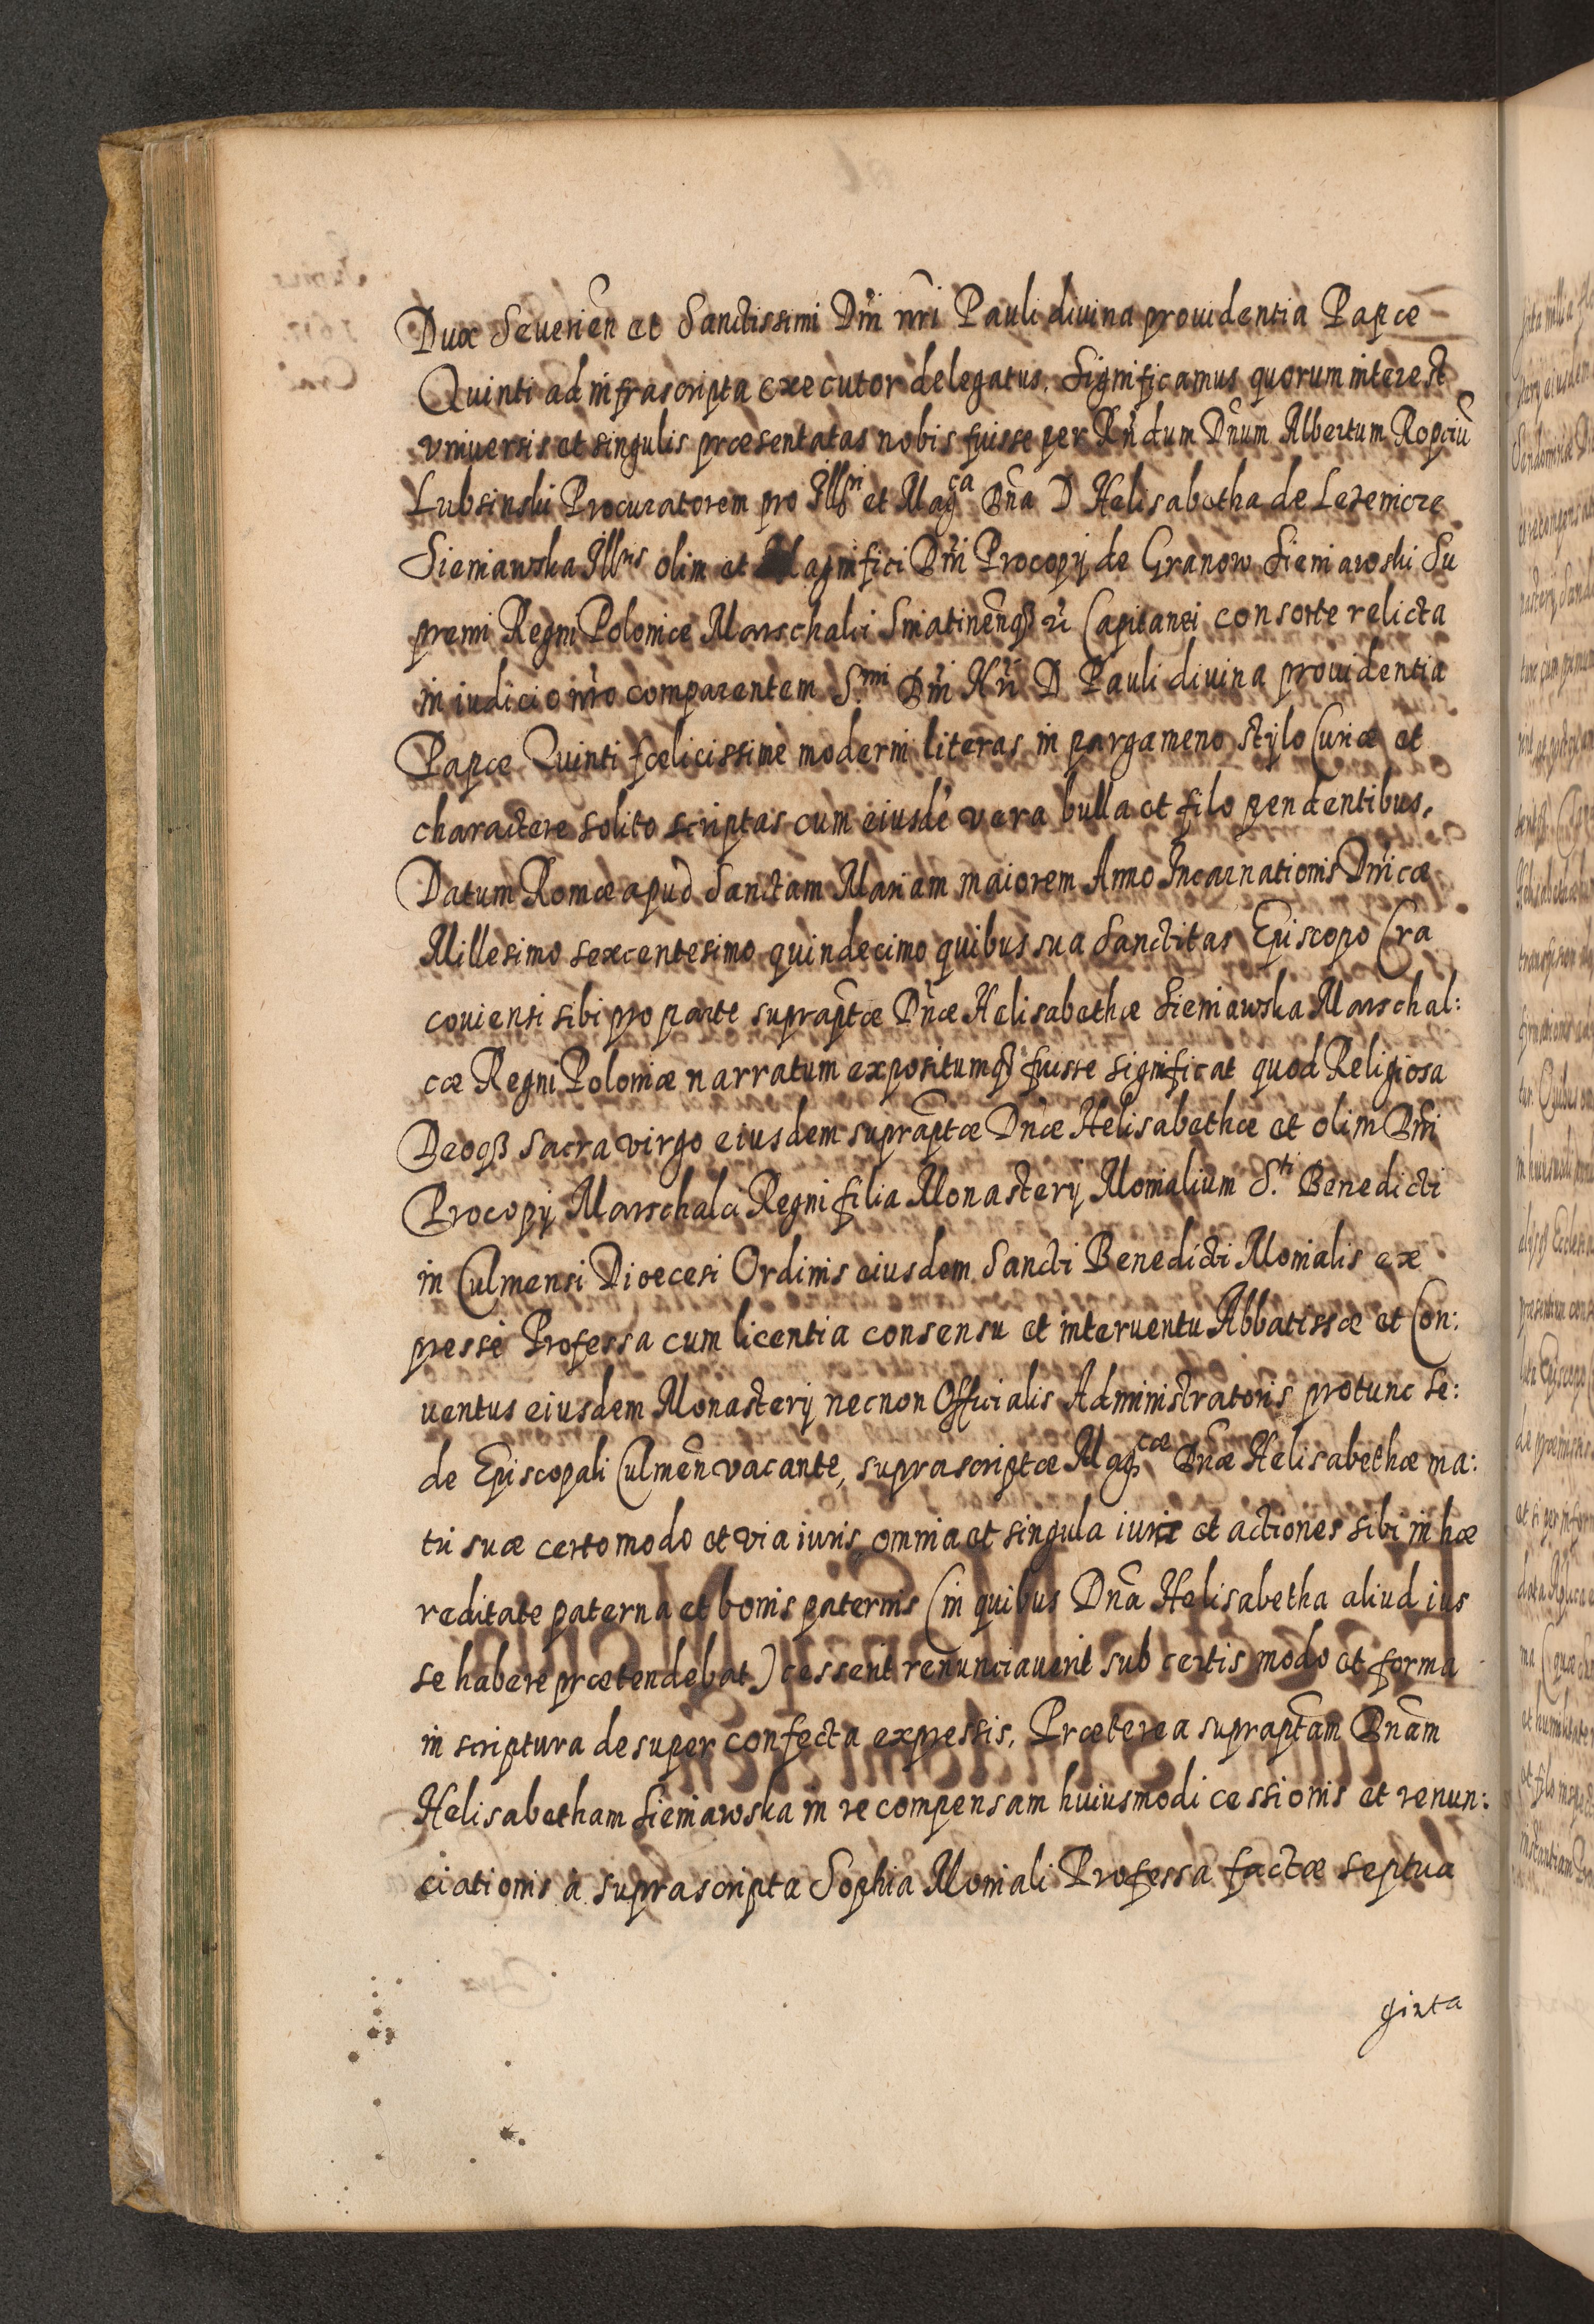 Dux Severieñ et Sanctissimi Dñi nr̃i Pauli divina providentia Papæ
Quinti ad infrascripta executor delegatus. Significamus quorum interest
vniuersis et singulis præsentatas nobis fuisse per Rñdum Dñum Albertum
Lubsinski Procuratorem pro Ill et Magca Dña D Helisabetha de Lezenicze
Sieniawska Illris olim et Magnifici Dñi Procopij de Granow Sieniawski Su
premi Regni Poloniæ Marschalci Capitanei consorte relicta
in iudicio nr̃o comparentem S.mi Dñi Nri D Pauli diuina prouidentia
Papæ Quinti fœlicissime moderni literas in pargameno stylo Curiæ et
charactere solito scriptas cum eiusdẽ vera bulla et filo pendentibus,
Datum Romæ apud Sanctam Mariam maiorem Anno Incarnationis Dñicæ
Millesimo sexcentesimo quindecimo quibus sua Sanctitas Episcopo Cra
couiensi sibi pro parte suprap̃tæ Dñæ Helisabethæ Sieniawska Marschal:
cæ Regni Poloniæ narratum expositumq3 fuisse significat quod Religiosa
Deoq3 sacra virgo eiusdem suprap̃tæ Dñæ Helisabethæ et olim Dñi
Procopij Marschalci Regni filia Monasterij Monialium S.ti Benedicti
in Culmensi Diœcesi Ordinis eiusdem Sancti Benedicti Monialis ex
presse Professa cum licentia consensu et interuentu Abbatissæ et Con:
uentus eiusdem Monasterij necnon Officialis Administratoris protunc Se:
de Episcopali Culmeñ vacante, suprascriptæ Magcæ Dñæ Helisabethæ ma:
tri suæ certo modo et via iuris omnia et singula iura et actiones sibi in hæ
reditate paterna et bonis paternis (in quibus Dña Helisabetha aliud ius
se habere prætendebat) cesserit renunciauerit sub certis modo et forma
in scriptura desuper confecta expressis, Præterea suprap̃tam Dñam
Helisabetham Sieniawska in recompensam huiusmodi cessionis et renun:
ciationis à suprascripta Sophia Moniali Professa factæ septua
ginta